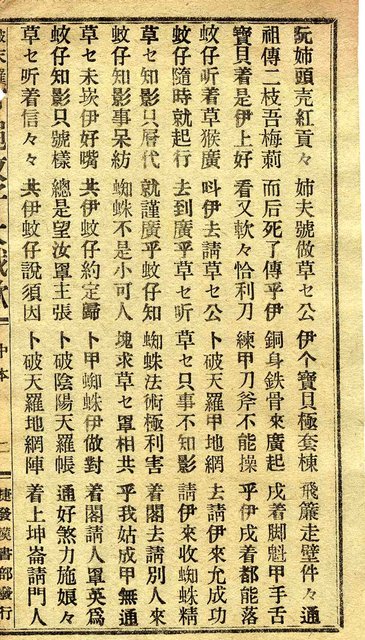 阮姉頭壳紅貢々 姉夫號做草セ公 伊个寶貝極套棟 飛簷走壁件々通
祖傳二枝吾梅莿 而后死了傳乎伊 銅身鉄骨來廣起 戌着脚魁甲手舌
寶貝着是伊上好 看又軟々恰利刀 練甲刀斧不能操 乎伊戌着都能落
蚊仔听着草猴廣 呌伊去請草セ公 卜破天羅甲地網 去請伊來允成功
蚊仔隨時就起行 去到廣乎草セ听 草セ只事不知影 請伊來收蜘蛛精
草セ知影只層代 就謹廣乎蚊仔知 蜘蛛法術極利害 着閣去請別人來
蚊仔知影事呆紡 蜘蛛不是小可人 塊求草セ罩相共 乎我姑成甲無通
草セ未坎伊好嘴 共伊蚊仔約定歸 卜甲蜘蛛伊做對 着閣請人罩英爲
蚊仔知影只號樣 總是望汝罩主張 卜破陰陽天羅帳 通好煞力施娘々
草セ听着信々々 共伊蚊仔說須因 卜破天羅地網陣 着上坤崙請門人
中本 二 捷發漢書部發行